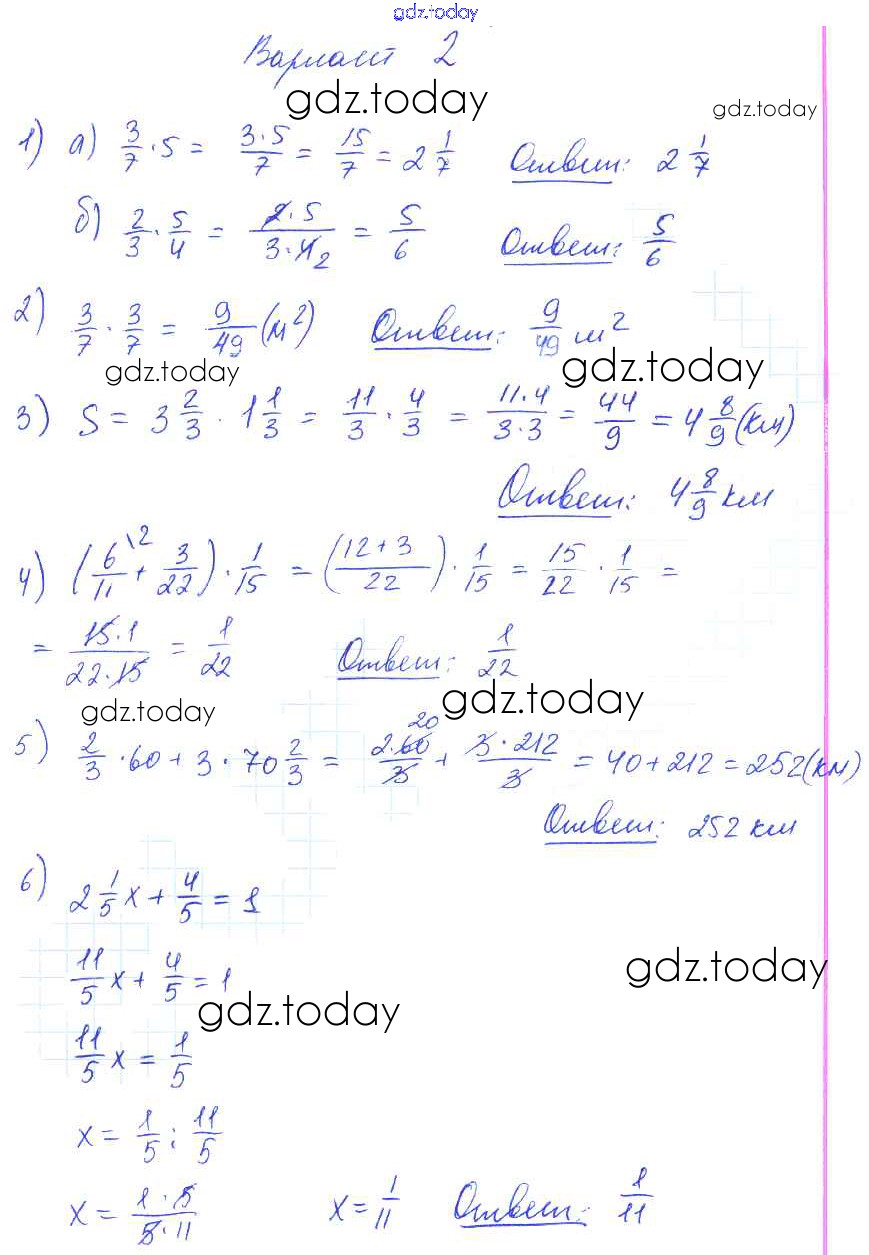 gdz.today
Вариант 2
gdz.today gdz.today
1) а) 3/7 · 5 = 3·5/7 = 15/7 = 2 1/7 Ответ: 2 1/7
б) 2/3 · 5/4 = 2·5/3·4 2 = 5/6 Ответ: 5/6
2) 3/7 · 3/7 = 9/49 (м²) Ответ: 9/49 м²
gdz.today gdz.today
3) S = 3 2/3 · 1 1/3 = 11/3 · 4/3 = 11·4/3·3 = 44/9 = 4 8/9 (км)
Ответ: 4 8/9 км
4) (6/11 \2 + 3/22) · 1/15 = (12+3/22) · 1/15 = 15/22 · 1/15 =
= 15·1/22·15 = 1/22 Ответ: 1/22
gdz.today gdz.today
5) 2/3 · 60 + 3 · 70 2/3 = 2·60 20/3 + 3·212/3 = 40 + 212 = 252 (км)
Ответ: 252 км
6) 2 1/5 x + 4/5 = 1
11/5 x + 4/5 = 1
gdz.today
gdz.today
11/5 x = 1/5
x = 1/5 : 11/5
x = 1·5/5·11 x = 1/11 Ответ: 1/11